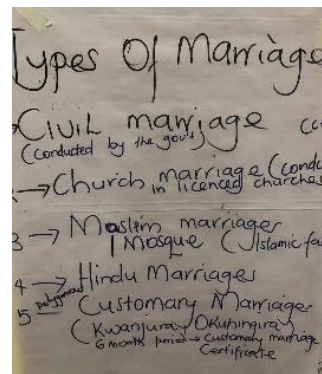 Types Of Marriage
CIVIL marriage
(conducted by the gov't)
→ Church marriage (condu
in licenced churches
3 → Moslim marriages
/ Mosque (Islamic fa
4 → Hindu Marriages
5 polygamous Customary Marriages
(Kwanjura/Okuhingira)
6 month period → Customary marriage
Certificate